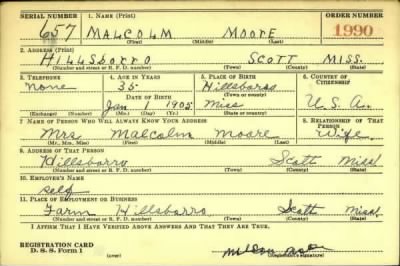 SERIAL NUMBER 1. NAME (Print) ORDER NUMBER
657 MALCOLM MOORE 1990
(First) (Middle) (Last)
2. ADDRESS (Print)
HILLSBORO SCOTT MISS.
(Number and street or R. F. D. number) (Town) (County) (State)
3. TELEPHONE 4. AGE IN YEARS 5. PLACE OF BIRTH 6. COUNTRY OF CITIZENSHIP
None 35 Hillsboro
DATE OF BIRTH (Town or county)
Jan 1 1905 Miss U.S.A.
(Exchange) (Number) (Mo.) (Day) (Yr.) (State or country)
7. NAME OF PERSON WHO WILL ALWAYS KNOW YOUR ADDRESS 8. RELATIONSHIP OF THAT PERSON
Mrs Malcolm Moore Wife
(Mr., Mrs., Miss) (First) (Middle) (Last)
9. ADDRESS OF THAT PERSON
Hillsboro Scott Miss
(Number and street or R. F. D. number) (Town) (County) (State)
10. EMPLOYER'S NAME
Self
11. PLACE OF EMPLOYMENT OR BUSINESS
Farm Hillsboro Scott Miss
(Number and street or R. F. D. number) (Town) (County) (State)
I AFFIRM THAT I HAVE VERIFIED ABOVE ANSWERS AND THAT THEY ARE TRUE.
REGISTRATION CARD
D. S. S. Form 1 (over) (Registrant's signature)